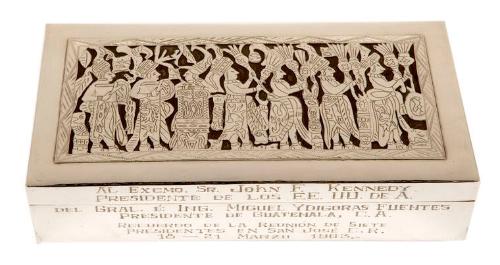 AL EXCMO. SR. JOHN F. KENNEDY
PRESIDENTE DE LOS EE. UU. DE A.
DEL GRAL. É ING. MIGUEL YDIGORAS FUENTES
PRESIDENTE DE GUATEMALA, C. A.
RECUERDO DE LA REUNION DE SIETE
PRESIDENTES EN SAN JOSE C. R.
18 - 21 MARZO 1963.-